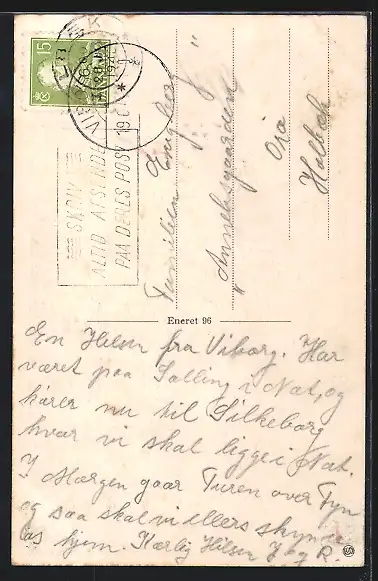 15
SKRIV
ALTID AFSENDER
PAA DERES POST
Familien Engberg
"Annebsgaarden"
Ora
Holbæk
Eneret 96
En Hilsen fra Viborg. Har
været paa Salling i Nat, og
kører nu til Silkeborg
hvor vi skal ligge i Nat.
I Morgen gaar Turen over Fyn
og saa skal vi ellers skynde
os hjem. Kærlig Hilsen J og R.